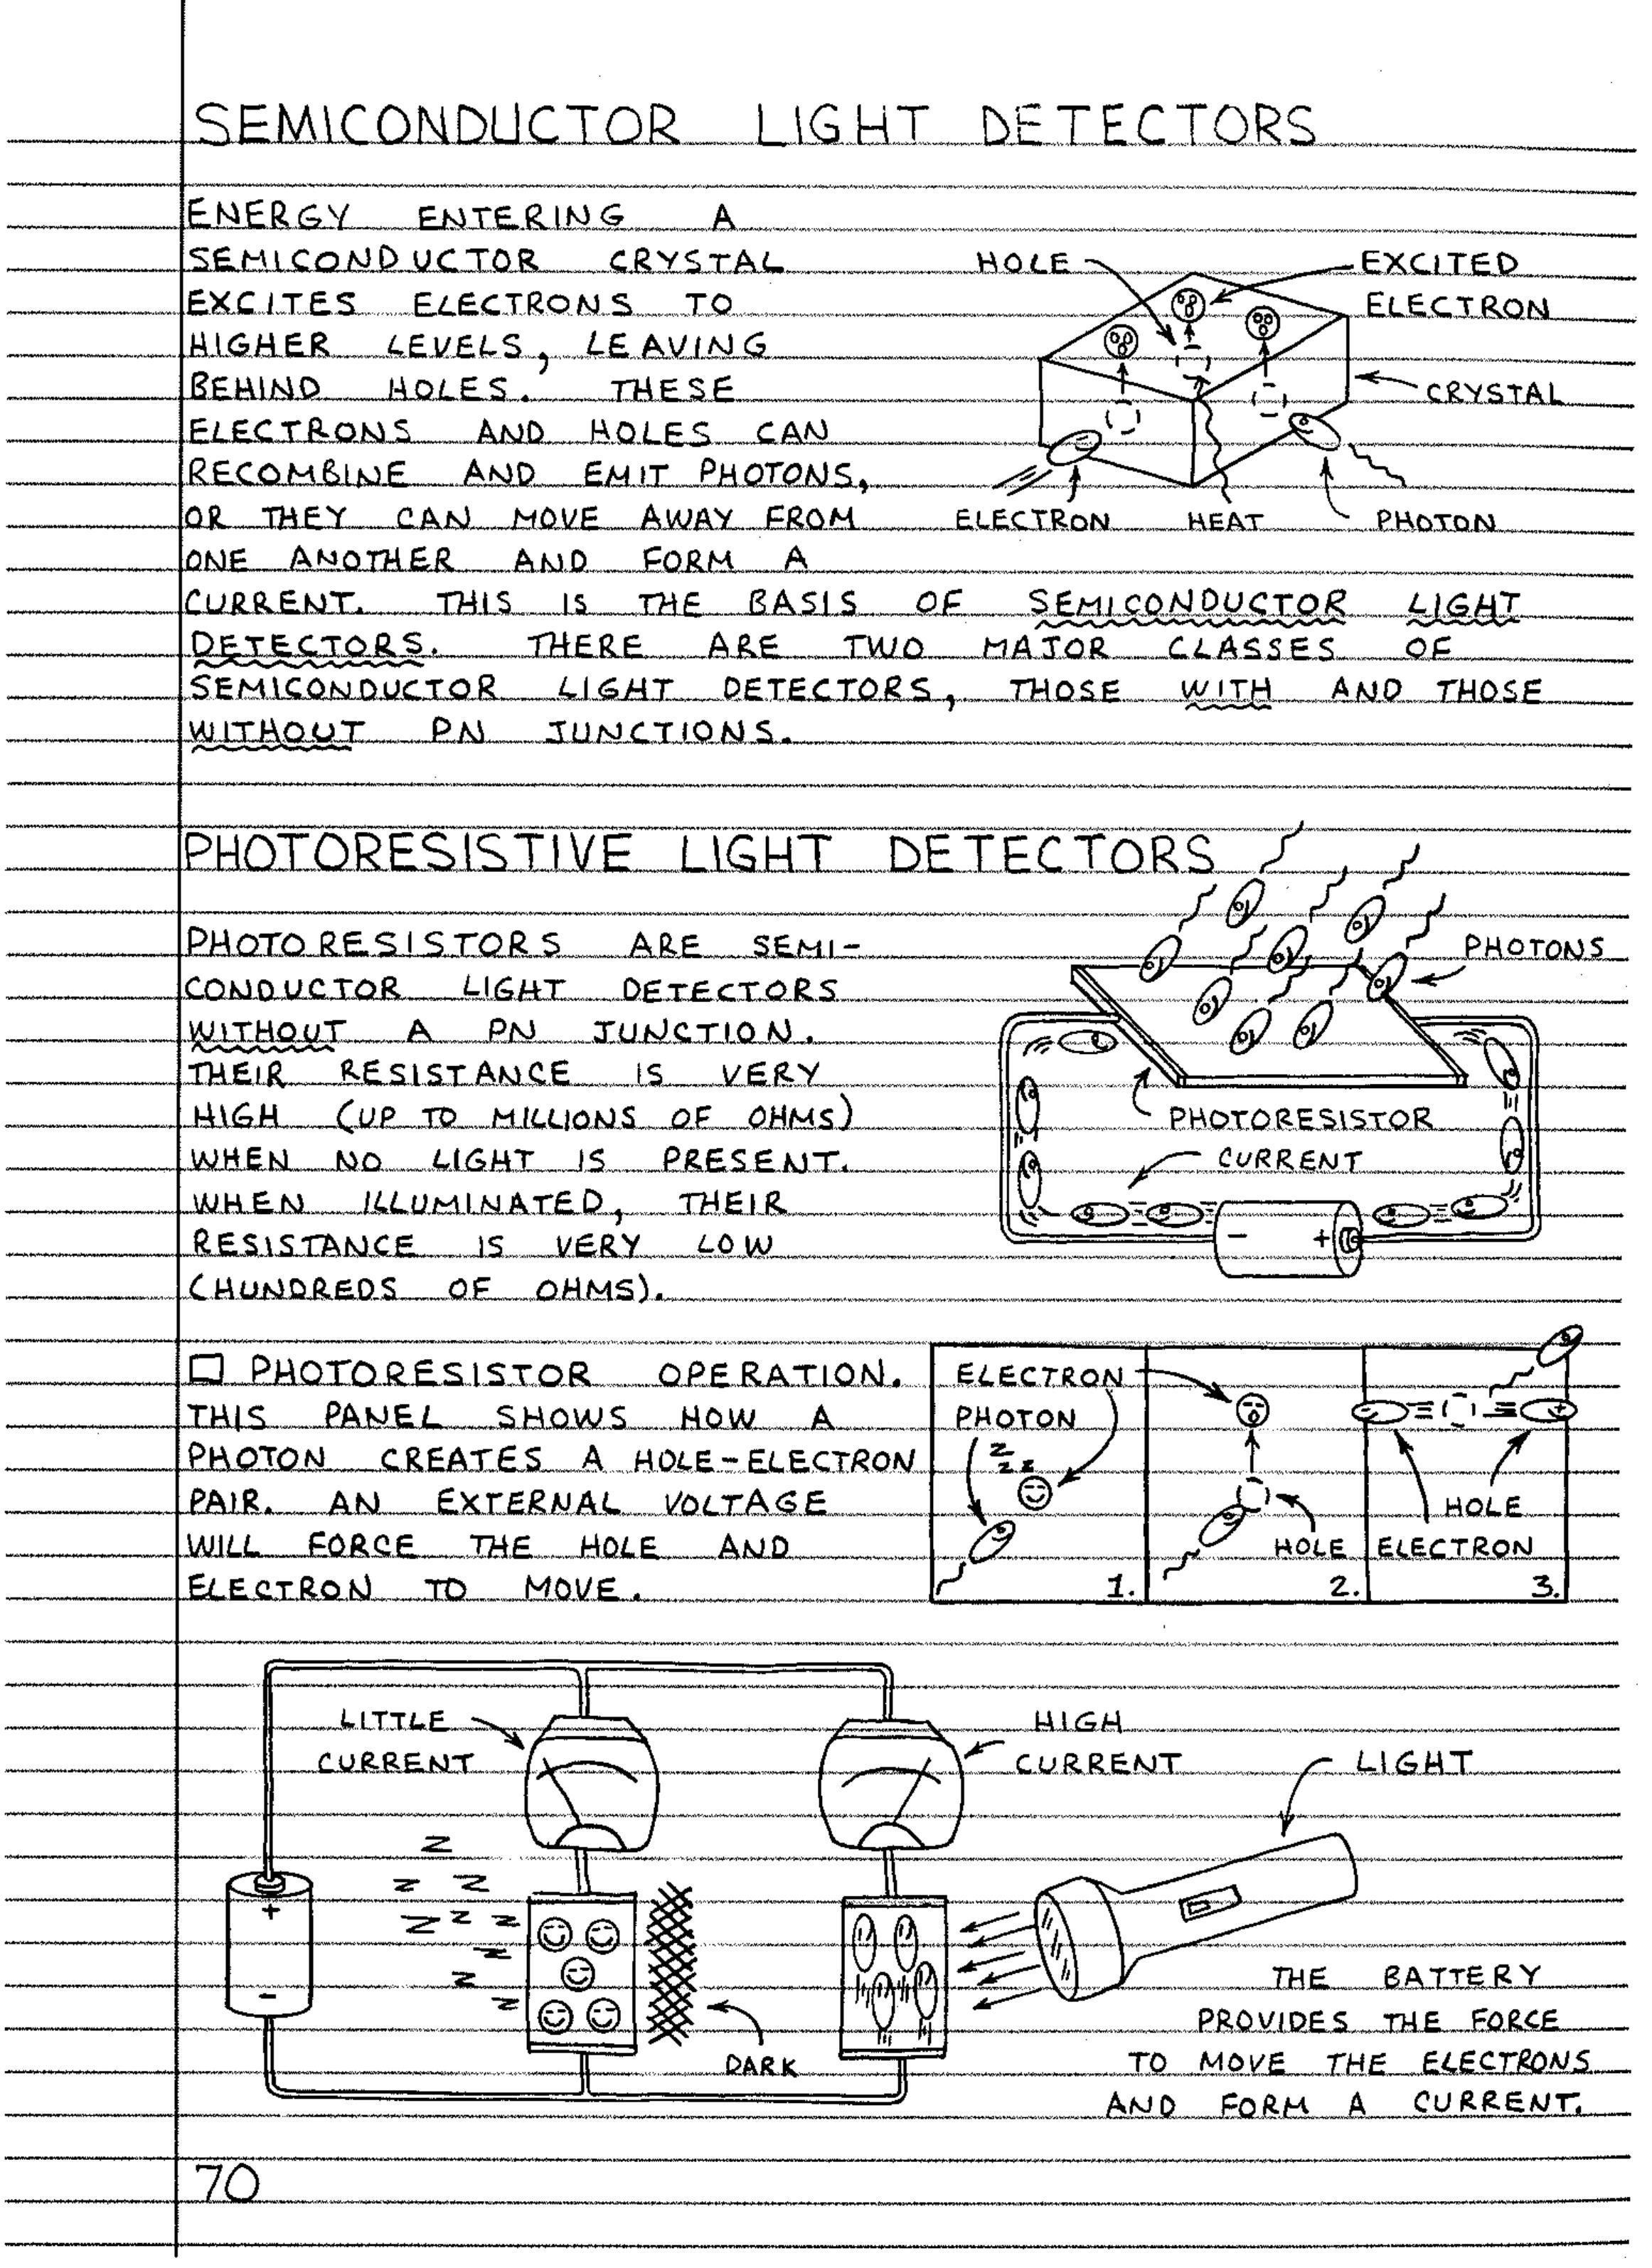 SEMICONDUCTOR LIGHT DETECTORS
ENERGY ENTERING A
SEMICONDUCTOR CRYSTAL
EXCITES ELECTRONS TO
HIGHER LEVELS, LEAVING
BEHIND HOLES. THESE
ELECTRONS AND HOLES CAN
RECOMBINE AND EMIT PHOTONS,
OR THEY CAN MOVE AWAY FROM
ONE ANOTHER AND FORM A
CURRENT. THIS IS THE BASIS OF SEMICONDUCTOR LIGHT
DETECTORS. THERE ARE TWO MAJOR CLASSES OF
SEMICONDUCTOR LIGHT DETECTORS, THOSE WITH AND THOSE
WITHOUT PN JUNCTIONS.
HOLE
EXCITED
ELECTRON
CRYSTAL
ELECTRON
HEAT
PHOTON
PHOTORESISTIVE LIGHT DETECTORS
PHOTORESISTORS ARE SEMI-
CONDUCTOR LIGHT DETECTORS
WITHOUT A PN JUNCTION.
THEIR RESISTANCE IS VERY
HIGH (UP TO MILLIONS OF OHMS)
WHEN NO LIGHT IS PRESENT.
WHEN ILLUMINATED, THEIR
RESISTANCE IS VERY LOW
(HUNDREDS OF OHMS).
PHOTONS
PHOTORESISTOR
CURRENT
- +
□ PHOTORESISTOR OPERATION.
THIS PANEL SHOWS HOW A
PHOTON CREATES A HOLE-ELECTRON
PAIR. AN EXTERNAL VOLTAGE
WILL FORCE THE HOLE AND
ELECTRON TO MOVE.
ELECTRON
PHOTON
Z
Z Z
1.
HOLE
2.
- +
HOLE
ELECTRON
3.
LITTLE
CURRENT
HIGH
CURRENT
LIGHT
+
-
Z
Z Z
Z Z Z
Z
Z
Z
DARK
THE BATTERY
PROVIDES THE FORCE
TO MOVE THE ELECTRONS
AND FORM A CURRENT.
70